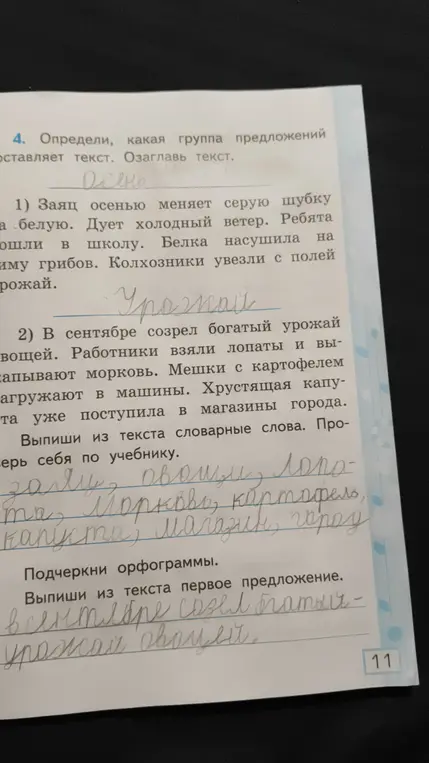 4. Определи, какая группа предложений
оставляет текст. Озаглавь текст.
Осень
1) Заяц осенью меняет серую шубку
а белую. Дует холодный ветер. Ребята
ошли в школу. Белка насушила на
иму грибов. Колхозники увезли с полей
рожай.
Урожай
2) В сентябре созрел богатый урожай
вощей. Работники взяли лопаты и вы-
капывают морковь. Мешки с картофелем
агружают в машины. Хрустящая капу-
та уже поступила в магазины города.
Выпиши из текста словарные слова. Про-
ерь себя по учебнику.
заяц, овощи, лопа-
та, морковь, картофель,
капуста, магазин, город
Подчеркни орфограммы.
Выпиши из текста первое предложение.
в сентябре созел богатый-
урожай овощей.
11